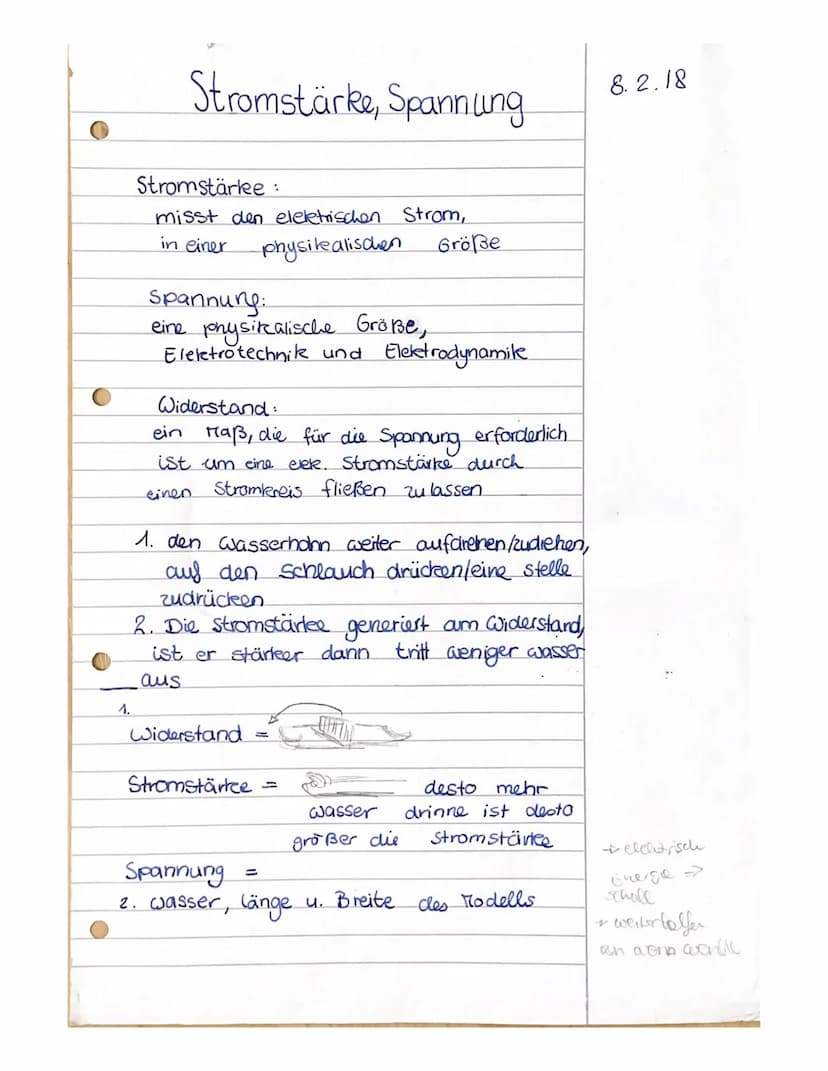 Stromstärke, Spannung
8.2.18
Stromstärke:
misst den elektrischen Strom,
in einer physikalischen Größe
Spannung:
eine physikalische Größe,
Elektrotechnik und Elektrodynamik
Widerstand:
ein Maß, die für die Spannung erforderlich
ist um eine elek. Stromstärke durch
einen Stromkreis fließen zu lassen
1. den Wasserhahn weiter aufdrehen/zudrehen,
auf den Schlauch drücken/eine stelle
zudrücken
2. Die Stromstärke generiert am Widerstand,
ist er stärker dann tritt weniger wasser
aus
1.
Widerstand =
Stromstärke = desto mehr
wasser drinne ist desto
größer die Stromstärke
Spannung =
2. wasser, länge u. Breite des Modells
→ elektrisch
Energie →